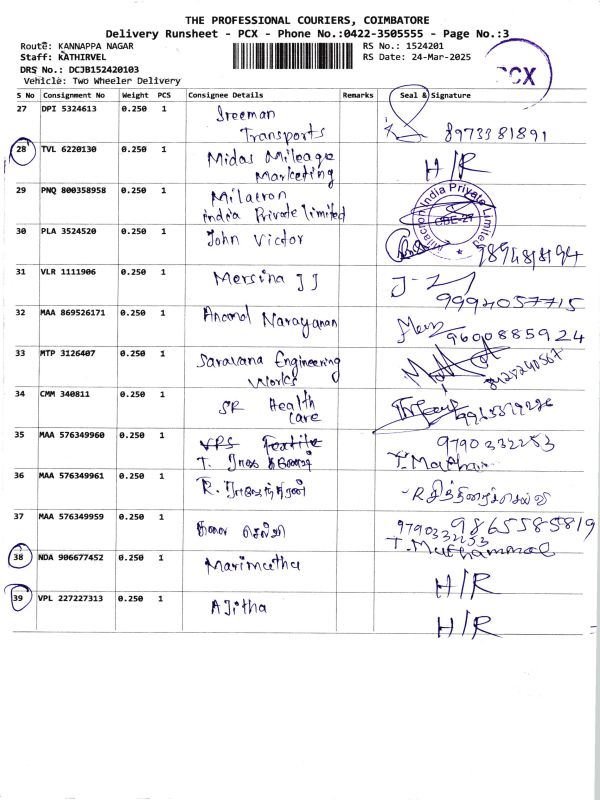 THE PROFESSIONAL COURIERS, COIMBATORE
Delivery Runsheet - PCX - Phone No.:0422-3505555 - Page No.:3
Route: KANNAPPA NAGAR
RS No.: 1524201
Staff: KATHIRVEL
RS Date: 24-Mar-2025
DRS No.: DCJB152420103
Vehicle: Two Wheeler Delivery
PCX
S No Consignment No Weight PCS Consignee Details Remarks Seal & Signature
27 DPI 5324613 0.250 1 Sreeman
Transports 8973381891
28 TVL 6220130 0.250 1 Midas Mileage H/R
Marketing
29 PNQ 800358958 0.250 1 Milacron
india Private limited
Milacron India Private Limited
CBE-27
30 PLA 3524520 0.250 1 John Victor 9894818194
31 VLR 1111906 0.250 1 Mersina JJ
9994057715
32 MAA 869526171 0.250 1 Anand Narayanan
9600885924
33 MTP 3126407 0.250 1 Saravana Engineering
Works
34 CMM 340811 0.250 1 SR Health
care
35 MAA 576349960 0.250 1 VPS Textile 9790332253
T. T. Muthammal
36 MAA 576349961 0.250 1 R.
37 MAA 576349959 0.250 1 கலை செல்வி 9865585819
9790332253
T. Muthammal
38 NDA 906677452 0.250 1 Marimuthu
H/R
39 VPL 227227313 0.250 1 Ajitha
H/R